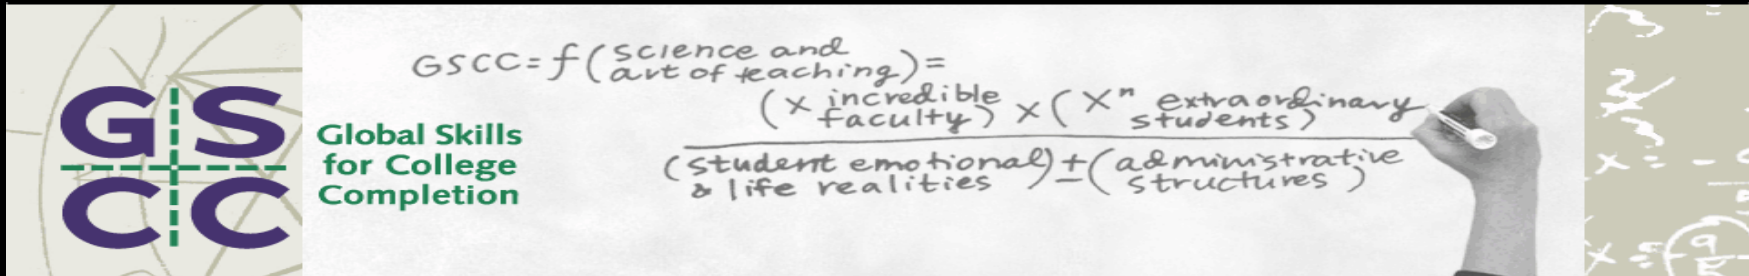 GS
CC
Global Skills
for College
Completion
GSCC = f ( science and
art of teaching ) =
( x incredible
faculty ) x ( xⁿ extraordinary
students )
( student emotional
& life realities ) ± ( administrative
structures )
x = -
x =